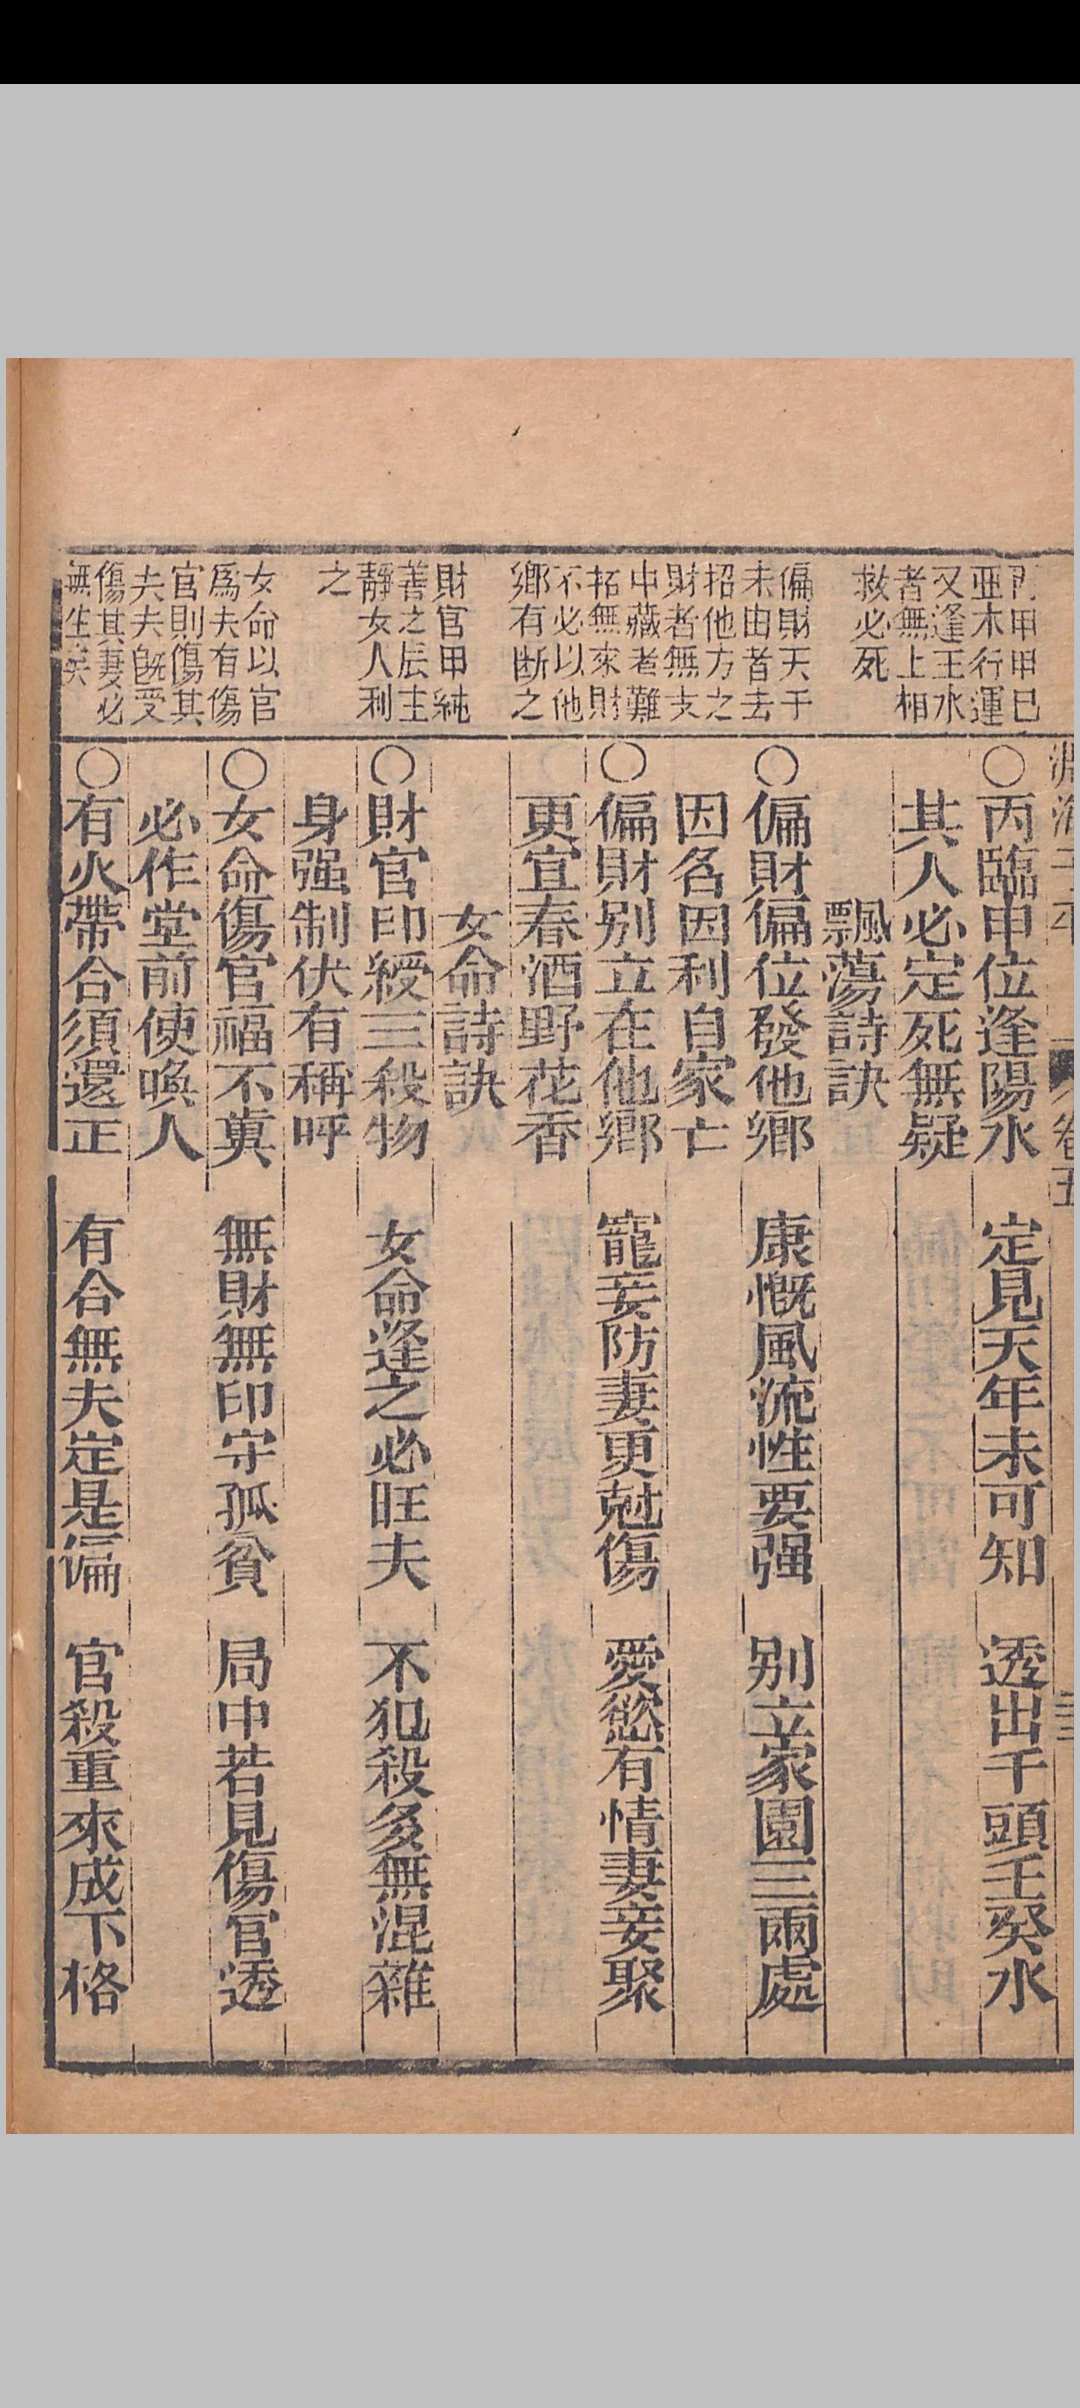 淵海子平
卷五
丙甲申巳
亞木行運
又逢壬水
者無上相
救必死
偏財天于
未由者去
招他方之
財者無支
中藏者難
招無來財
不必以他
鄉有断之
財官甲純
善之辰主
靜女人利
之
女命以官
爲夫有傷
官則傷其
夫夫旣受
傷其妻必
無生矣
○丙臨申位逢陽水　定見天年未可知　透出干頭壬癸水
其人必定死無疑
飄蕩詩訣
○偏財偏位發他鄉　康慨風流性要强　別立家園三兩處
因名因利自家亡
○偏財别立在他鄉　寵妾防妻更尅傷　愛慾有情妻妾聚
更宜春酒野花香
女命詩訣
○財官印綬三般物　女命逢之必旺夫　不犯殺多無混雜
身强制伏有稱呼
○女命傷官福不眞　無財無印守孤貧　局中若見傷官透
必作堂前使喚人
○有火帶合須還正　有合無夫定是偏　官殺重來成下格